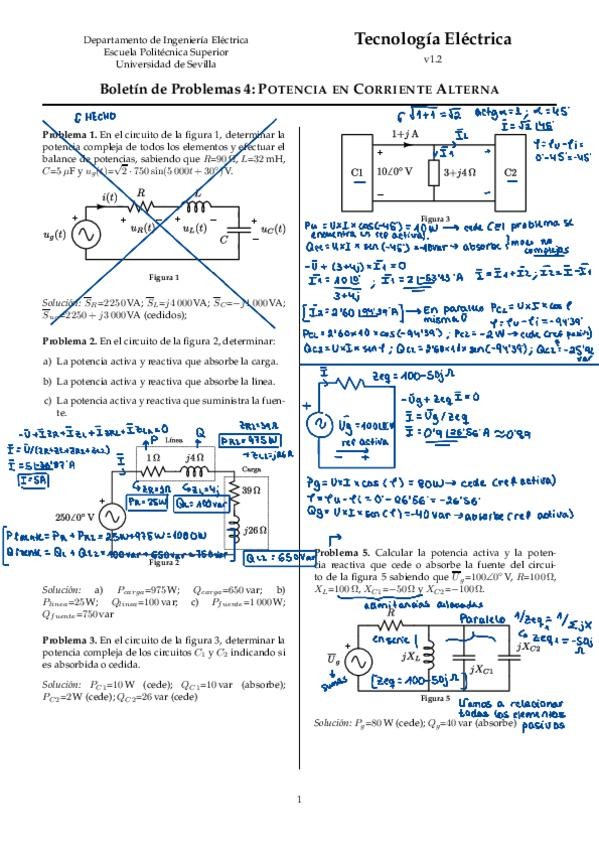 Departamento de Ingeniería Eléctrica
Escuela Politécnica Superior
Universidad de Sevilla
Tecnología Eléctrica
v1.2
Boletín de Problemas 4: POTENCIA EN CORRIENTE ALTERNA
HECHO
Problema 1. En el circuito de la figura 1, determinar la
potencia compleja de todos los elementos y efectuar el
balance de potencias, sabiendo que R=90 Ω, L=32 mH,
C=5 µF y ug(t)=√2 · 750 sin(5 000t + 30°) V.
i(t)
R
L
+
ug(t)
+ uR(t) −
+ uL(t) −
C
+
uC(t)
−
Figura 1
Solución: SR=2250 VA; SL=j4 000 VA; SC=−j1 000 VA;
2250 + j3 000 VA (cedidos);
Problema 2. En el circuito de la figura 2, determinar:
a) La potencia activa y reactiva que absorbe la carga.
b) La potencia activa y reactiva que absorbe la línea.
c) La potencia activa y reactiva que suministra la fuen-
te.
-U+IZR+IZL+IZR2+IZL2=0
I=U/(ZR+ZL+ZR2+ZL2)
I=5A
P
Línea
Q
PR2=975W
Carga
1 Ω
j4 Ω
ZL=4j
PR=25W
QL=100var
39 Ω
j26 Ω
250∠0° V
Pfuente=PR+PR2=25W+975W=1000W
Qfuente=QL+QL2=100var+650var=750var
QL2=650var
Figura 2
Solución: a) Pcarga=975 W; Qcarga=650 var; b)
Plinea=25 W; Qlinea=100 var; c) Pfuente=1 000 W;
Qfuente=750 var
Problema 3. En el circuito de la figura 3, determinar la
potencia compleja de los circuitos C1 y C2 indicando si
es absorbida o cedida.
Solución: PC1=10 W (cede); QC1=10 var (absorbe);
PC2=2 W (cede); QC2=26 var (cede)
√1+1=√2
actg α=1; α=45°
I=√2 |45°
φ=φu-φi=
0°-45°=-45°
1+j A
IL
I1
C1
+
10∠0° V
−
3+j4 Ω
C2
Figura 3
-U+(3+4j)·I1=0
I1=10|0°
3+4j
I1=2|-53'13°A
I=I1+I2; I2=I-I1
En paralelo
misma U
PC2=U×I×cos φ
φ=φu-φi=-94'39°
PC2=2'60×10×cos(-94'39); PC2=-2W → cede
QC2=U×I×sen φ; QC2=2'60×10×sen(-94'39); QC2=-25'9
var
I
Zeq=100-50j Ω
+
Ug=100|0°V
ref activa
-Ug+Zeq·I=0
I=Ug/Zeq
I=0'9|26'56°A ≈0'89
Pg=U×I×cos(φ)=80W → cede (ref activa)
φ=φu-φi=0°-26'56°=-26'56°
Qg=U×I×sen(φ)=-40var → absorbe (ref activa)
Problema 5. Calcular la potencia activa y la poten-
cia reactiva que cede o absorbe la fuente del circui-
to de la figura 5 sabiendo que Ug=100∠0° V, R=100 Ω,
XL=100 Ω, XC1=−50 Ω y XC2=−100 Ω.
Paralelo
R
en serie
+
Ug
jXL
jXC1
jXC2
Zeq=-50j
Ω
[Zeq=100-50j Ω]
sumas
Figura 5
Vamos a relacionar
todos los elementos
pasivos
Solución: Pg=80 W (cede); Qg=40 var (absorbe)
1